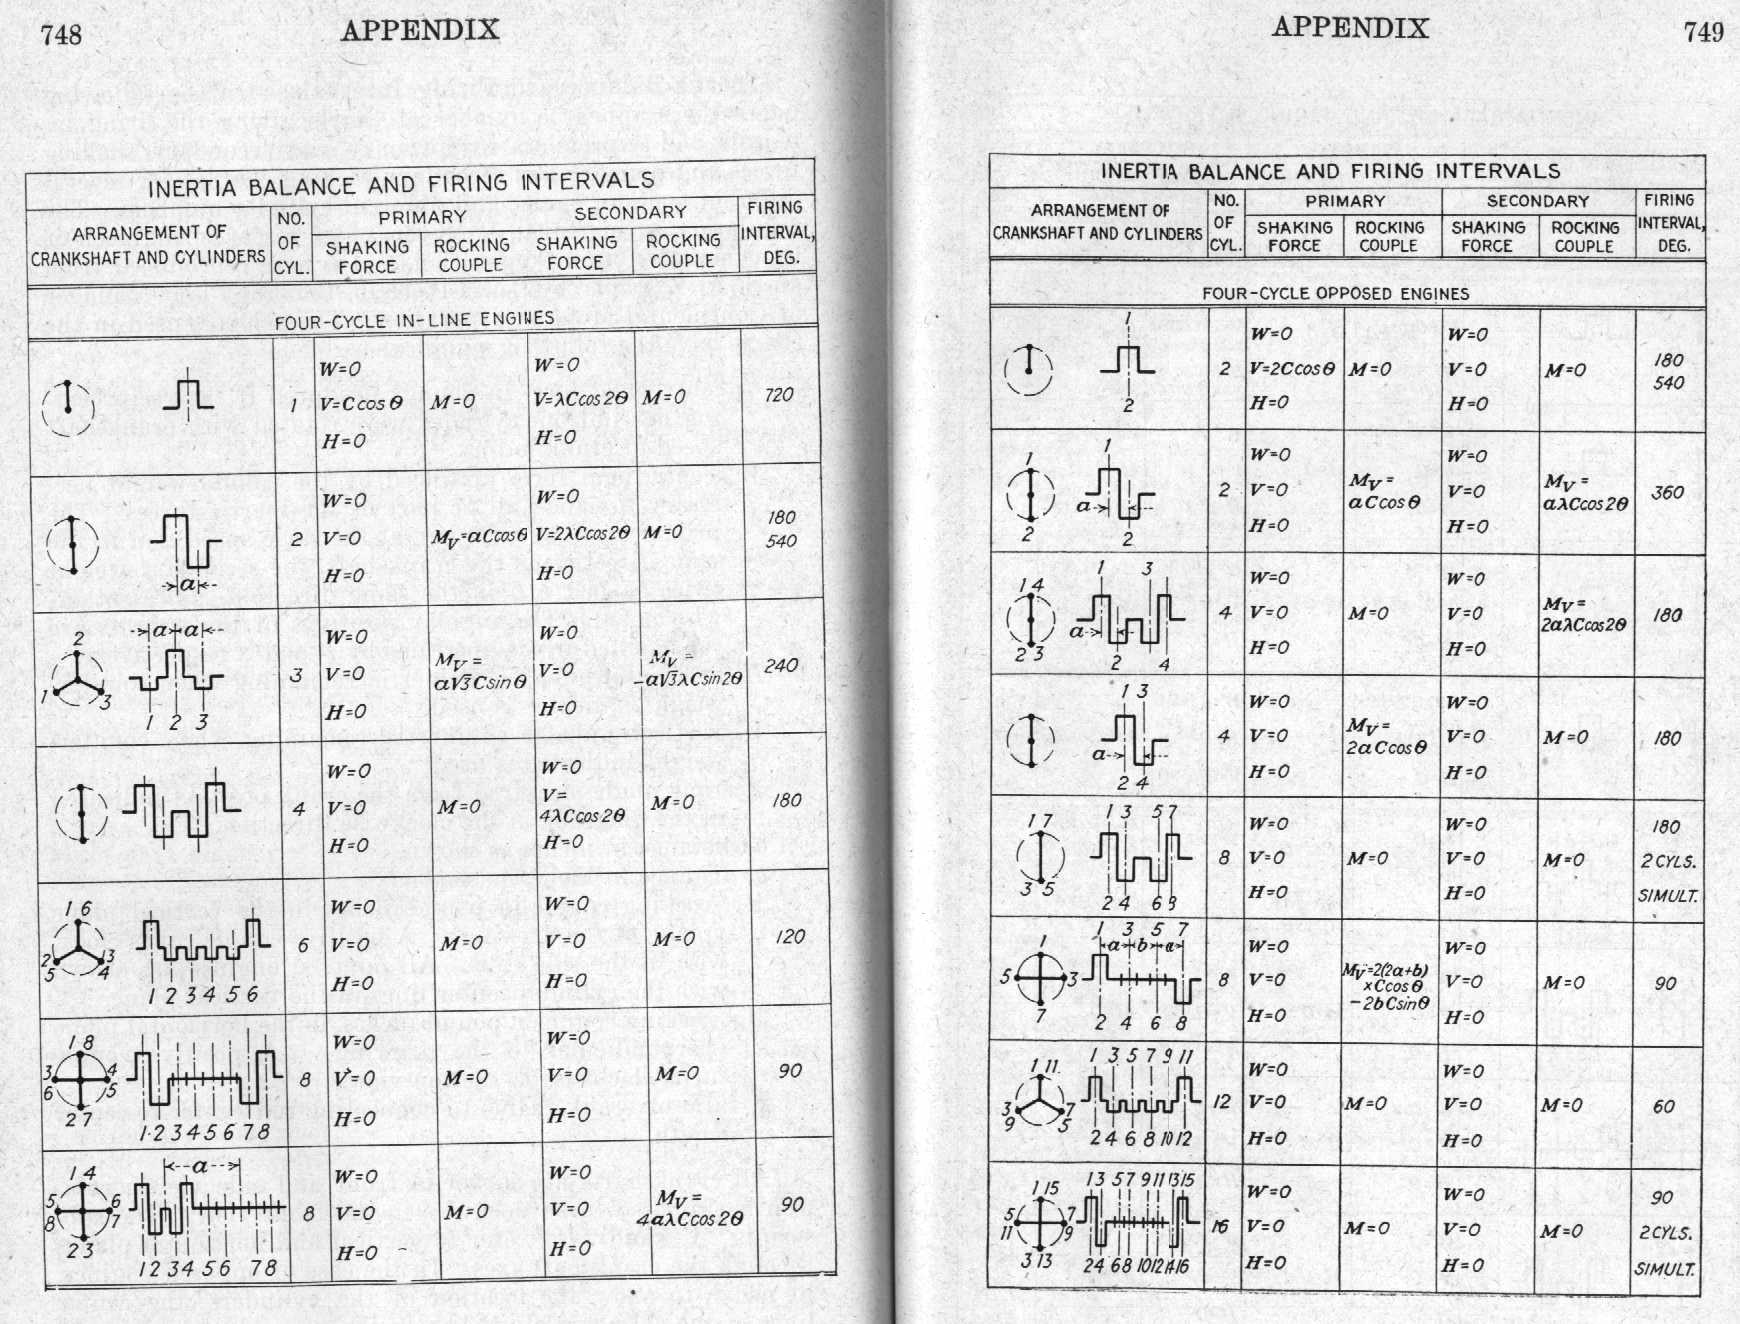 748 APPENDIX
INERTIA BALANCE AND FIRING INTERVALS
ARRANGEMENT OF CRANKSHAFT AND CYLINDERS
NO. OF CYL.
PRIMARY
SHAKING FORCE
ROCKING COUPLE
SECONDARY
SHAKING FORCE
ROCKING COUPLE
FIRING INTERVAL, DEG.
FOUR-CYCLE IN-LINE ENGINES
1
W=0
V=C cos θ
H=0
M=0
W=0
V=λCcos 2θ
H=0
M=0
720
a
2
W=0
V=0
H=0
M_V=aCcosθ
W=0
V=2λCcos2θ
H=0
M=0
180
540
2
1 3
a a
1 2 3
3
W=0
V=0
H=0
M_V =
a√3 Csin θ
W=0
V=0
H=0
M_V =
-a√3λCsin 2θ
240
4
W=0
V=0
H=0
M=0
W=0
V=
4λCcos 2θ
H=0
M=0
180
1 6
2 3
5 4
1 2 3 4 5 6
6
W=0
V=0
H=0
M=0
W=0
V=0
H=0
M=0
120
1 8
3 4
6 5
2 7
1 2 3 4 5 6 7 8
8
W=0
V=0
H=0
M=0
W=0
V=0
H=0
M=0
90
1 4
5 6
8 7
2 3
a
1 2 3 4 5 6 7 8
8
W=0
V=0
H=0
M=0
W=0
V=0
H=0
M_V =
4aλCcos 2θ
90
APPENDIX 749
INERTIA BALANCE AND FIRING INTERVALS
ARRANGEMENT OF CRANKSHAFT AND CYLINDERS
NO. OF CYL.
PRIMARY
SHAKING FORCE
ROCKING COUPLE
SECONDARY
SHAKING FORCE
ROCKING COUPLE
FIRING INTERVAL, DEG.
FOUR-CYCLE OPPOSED ENGINES
1
2
2
W=0
V=2Ccosθ
H=0
M=0
W=0
V=0
H=0
M=0
180
540
1
2
1
a
2
2
W=0
V=0
H=0
M_V =
aCcosθ
W=0
V=0
H=0
M_V =
aλCcos2θ
360
1 4
2 3
1 3
a
2 4
4
W=0
V=0
H=0
M=0
W=0
V=0
H=0
M_V =
2aλCcos2θ
180
1 3
a
2 4
4
W=0
V=0
H=0
M_V =
2aCcosθ
W=0
V=0
H=0
M=0
180
1 7
3 5
1 3 5 7
2 4 6 8
8
W=0
V=0
H=0
M=0
W=0
V=0
H=0
M=0
180
2 CYLS.
SIMULT.
1
5 3
7
1 3 5 7
a b a
2 4 6 8
8
W=0
V=0
H=0
M_V=2(2a+b)
×Ccosθ
-2bCsinθ
W=0
V=0
H=0
M=0
90
1 11
3 7
9 5
1 3 5 7 9 11
2 4 6 8 10 12
12
W=0
V=0
H=0
M=0
W=0
V=0
H=0
M=0
60
1 15
5 7
11 9
3 13
1 3 5 7 9 11 13 15
2 4 6 8 10 12 14 16
16
W=0
V=0
H=0
M=0
W=0
V=0
H=0
M=0
90
2 CYLS.
SIMULT.